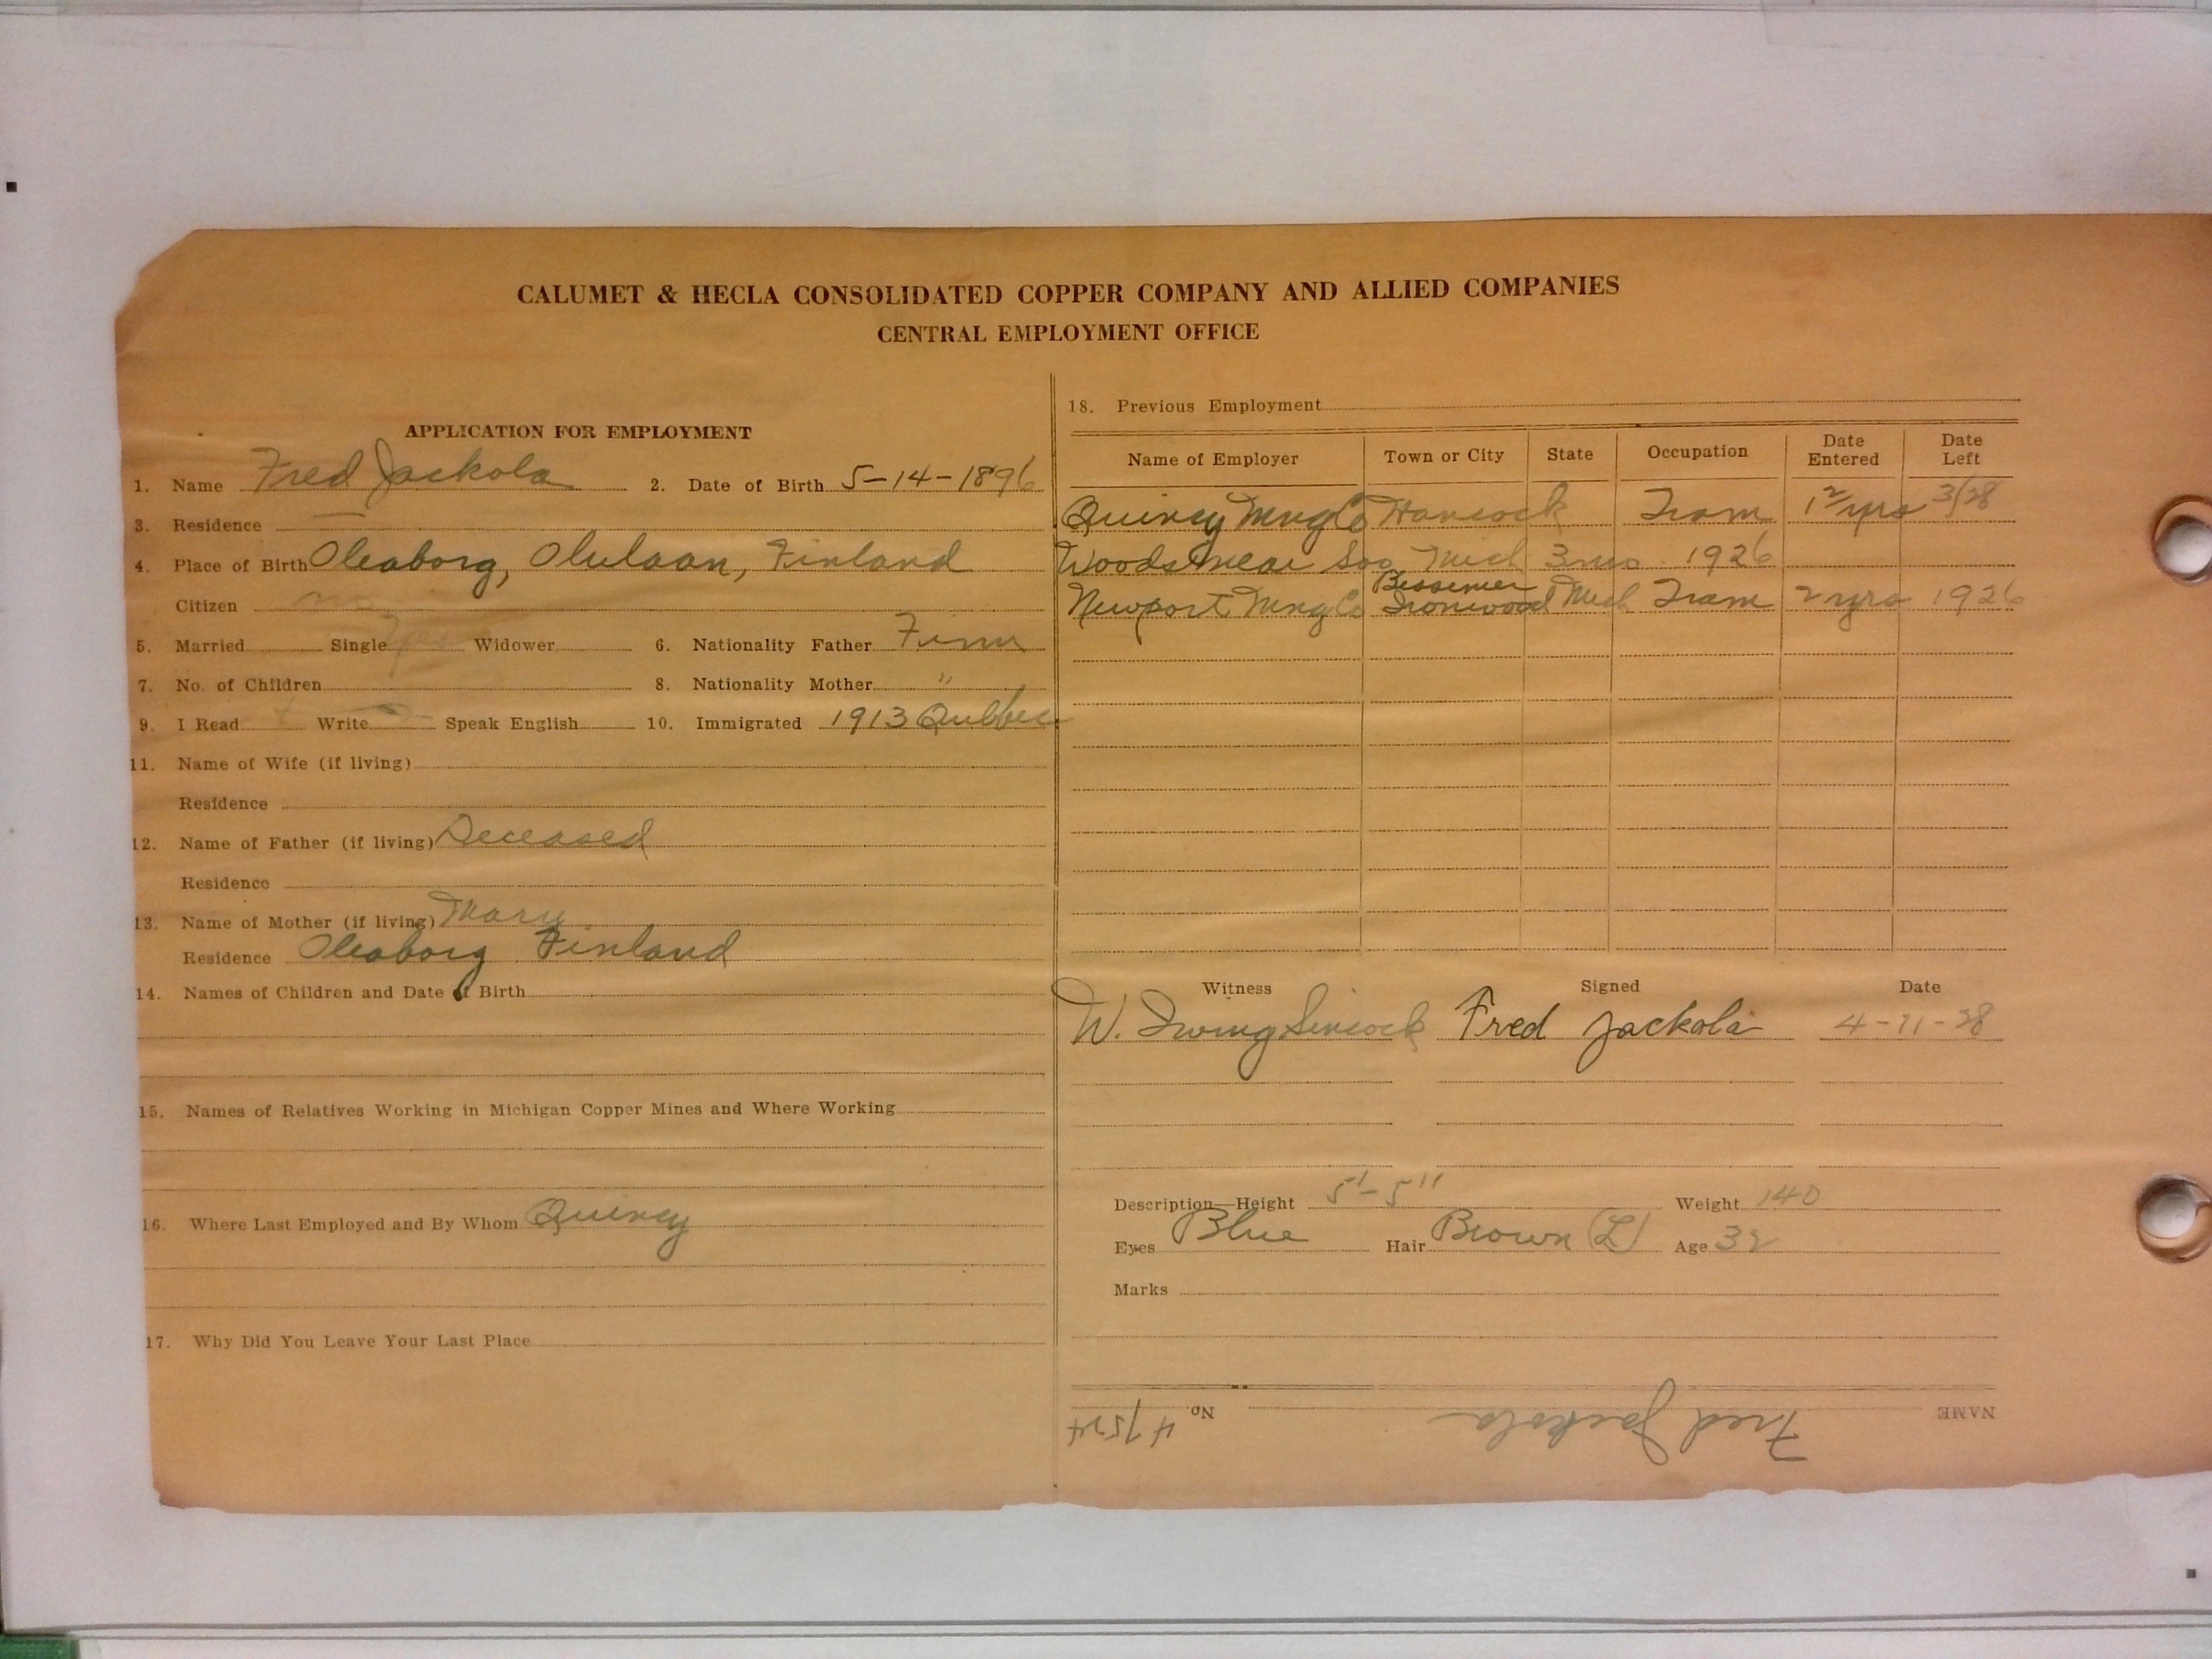 CALUMET & HECLA CONSOLIDATED COPPER COMPANY AND ALLIED COMPANIES
CENTRAL EMPLOYMENT OFFICE
APPLICATION FOR EMPLOYMENT
1. Name Fred Jackola 2. Date of Birth 5-14-1896
3. Residence
4. Place of Birth Oleaborg, Olulaan, Finland
Citizen no
5. Married Single Yes Widower 6. Nationality Father Finn
7. No. of Children 8. Nationality Mother "
9. I Read Write Speak English 10. Immigrated 1913 Quibbec
11. Name of Wife (if living)
Residence
12. Name of Father (if living) Deceased
Residence
13. Name of Mother (if living) Mary
Residence Oleaborg Finland
14. Names of Children and Date of Birth
15. Names of Relatives Working in Michigan Copper Mines and Where Working
16. Where Last Employed and By Whom Quincy
17. Why Did You Leave Your Last Place
18. Previous Employment
Name of Employer Town or City State Occupation Date Entered Date Left
Quincy Mng Co Hancock Tram 1 2/ yrs 3/28
Woods near Soo Mich 3 mo. 1926
Bessemer
Newport Mng Co Ironwood Mich Tram 2 yrs 1926
Witness Signed Date
W. Irving Sincock Fred Jackola 4-11-28
Description—Height 5'-5" Weight 140
Eyes Blue Hair Brown (L) Age 32
Marks
NAME Fred Jackola No.